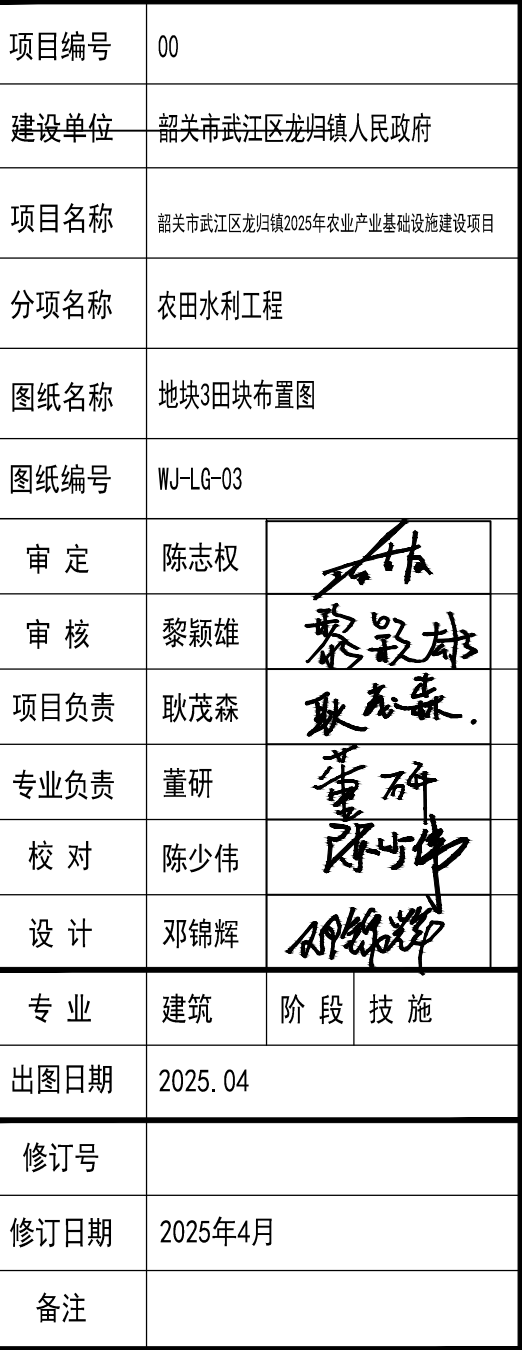 项目编号 00
建设单位 韶关市武江区龙归镇人民政府
项目名称 韶关市武江区龙归镇2025年农业产业基础设施建设项目
分项名称 农田水利工程
图纸名称 地块3田块布置图
图纸编号 WJ-LG-03
审 定 陈志权
审 核 黎颖雄 黎颖雄
项目负责 耿茂森 耿茂森.
专业负责 董研 董研
校 对 陈少伟 陈少伟
设 计 邓锦辉 邓锦辉
专 业 建筑 阶 段 技 施
出图日期 2025.04
修订号
修订日期 2025年4月
备注